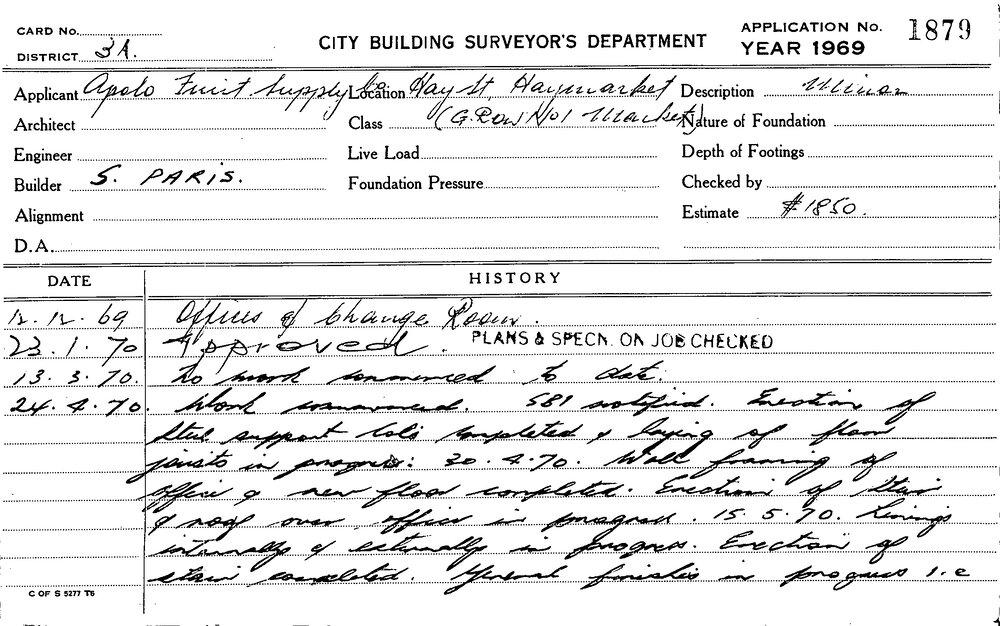 CARD No.
DISTRICT 3A.
CITY BUILDING SURVEYOR'S DEPARTMENT
APPLICATION No. 1879
YEAR 1969
Applicant Apolo Fruit Supply Co Location Hay St, Haymarket Description Minor
Architect Class (G. Row No 1 Market) Nature of Foundation
Engineer Live Load Depth of Footings
Builder S. PARIS. Foundation Pressure Checked by
Alignment Estimate $1850.
D.A.
DATE HISTORY
12.12.69 Offices & Change Room.
23.1.70 Approved. PLANS & SPECN. ON JOB CHECKED
13.3.70. No work commenced to date.
24.4.70. Work commenced. 581 notified. Erection of
steel support cols completed & laying of floor
joists in progress: 30.4.70. Wall framing of
office & new floor completed. Erection of stair
& roof over office in progress. 15.5.70. Linings
internally & externally in progress. Erection of
stair completed. General finishes in progress i.e
C OF S 5277 T6